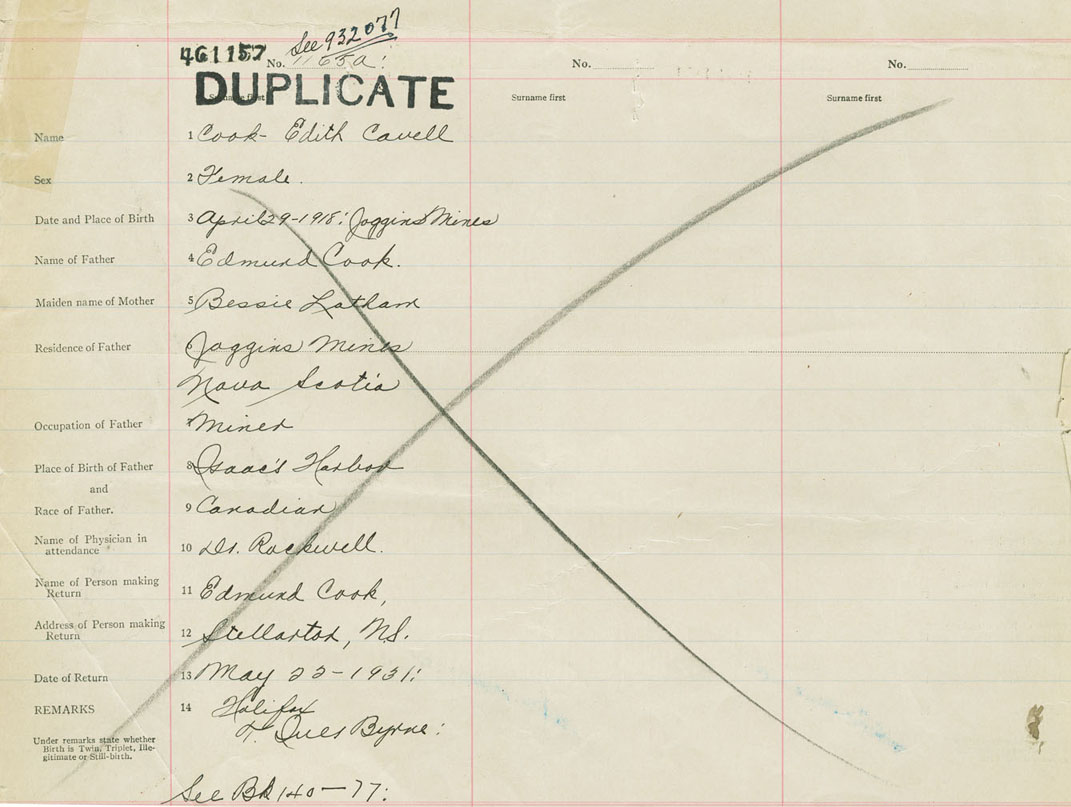 See 932077
461157 No. 1165a:
No.
No.
DUPLICATE
Surname first
Surname first
Surname first
Name 1 Cook - Edith Cavell
Sex 2 Female.
Date and Place of Birth 3 April 29-1918: Joggins Mines
Name of Father 4 Edmund Cook.
Maiden name of Mother 5 Bessie Latham
Residence of Father 6 Joggins Mines
Nova Scotia
Occupation of Father 7 Miner
Place of Birth of Father 8 Isaac's Harbor
and
Race of Father. 9 Canadian
Name of Physician in
attendance 10 Dr. Rockwell.
Name of Person making
Return 11 Edmund Cook,
Address of Person making
Return 12 Stellarton, N.S.
Date of Return 13 May 22-1931:
REMARKS 14 Halifax
Byrne:
Under remarks state whether
Birth is Twin, Triplet, Ille-
gitimate or Still-birth.
See Bk 140-77: